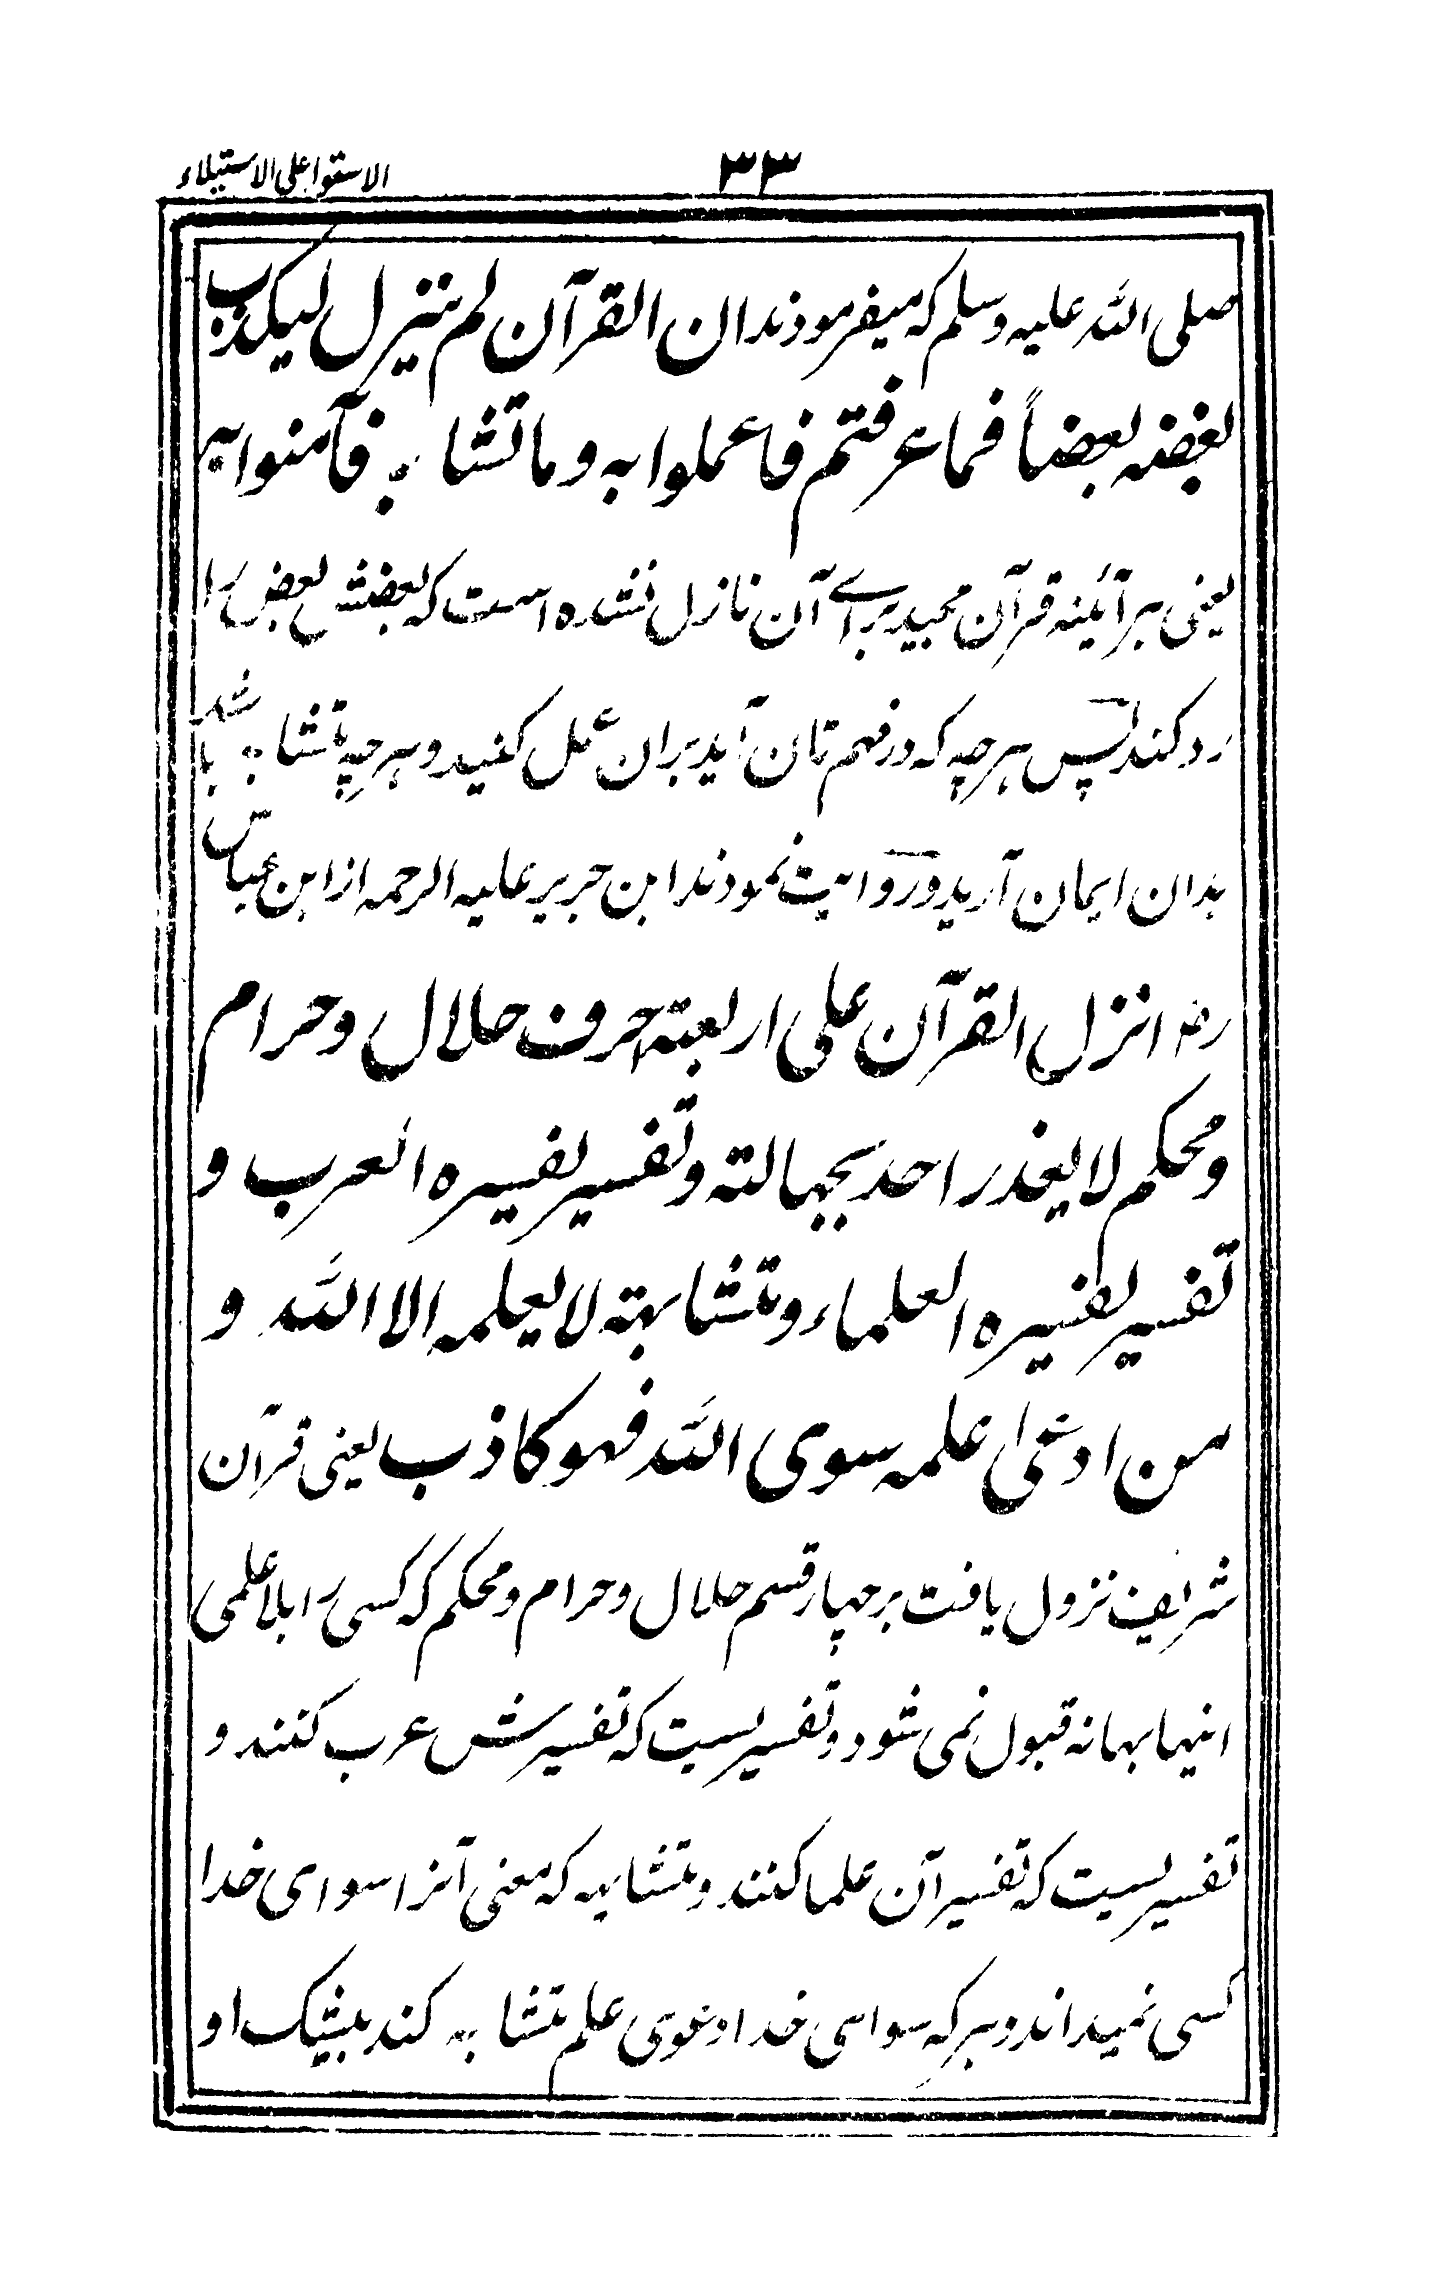 ۳۳
الاستوا علی الاستیلاء
صلی الله علیه وسلم که میفرمودند ان القرآن لم ینزل لیکذب
بعضه بعضاً فما عرفتم فاعملوا به وما تشابه فآمنوا به
یعنی هر آئینه قرآن مجید برائے آن نازل نشده است که بعضش بعض را
رد کند پس هرچه که در فهم تان آید بران عمل کنید و هرچه متشابه باشد
بدان ایمان آرید و روایت نمودند ابن جریر علیه الرحمه از ابن عباس
رضـ انزل القرآن علی اربعة احرف حلال وحرام
ومحکم لا یعذر احد بجهالته وتفسیر یفسره العرب و
تفسیر یفسره العلماء ومتشابهة لا یعلمه الا الله و
من ادعی علمه سوی الله فهو کاذب یعنی قرآن
شریف نزول یافت بر چهار قسم حلال و حرام و محکم که کسی را بلاعلمی
اینها بهانه قبول نمی شود و تفسیریست که تفسیرش عرب کنند و
تفسیریست که تفسیر آن علما کنند و متشابه که معنی آنرا سوای خدا
کسی نمیداند و هر که سوای خدا دعوی علم متشابه کند بیشک او